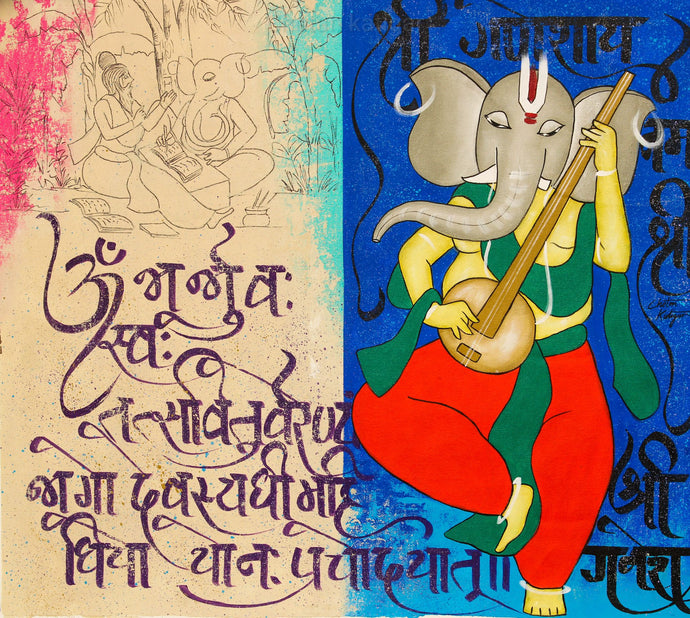 ॐ भूर्भुवः
स्वः
तत्सवितुर्वरेण्य
भर्गो देवस्यधीमहि
धियो यानः प्रचोदयात्॥
श्री गणेशाय
नम
श्री
श्री
गणेश